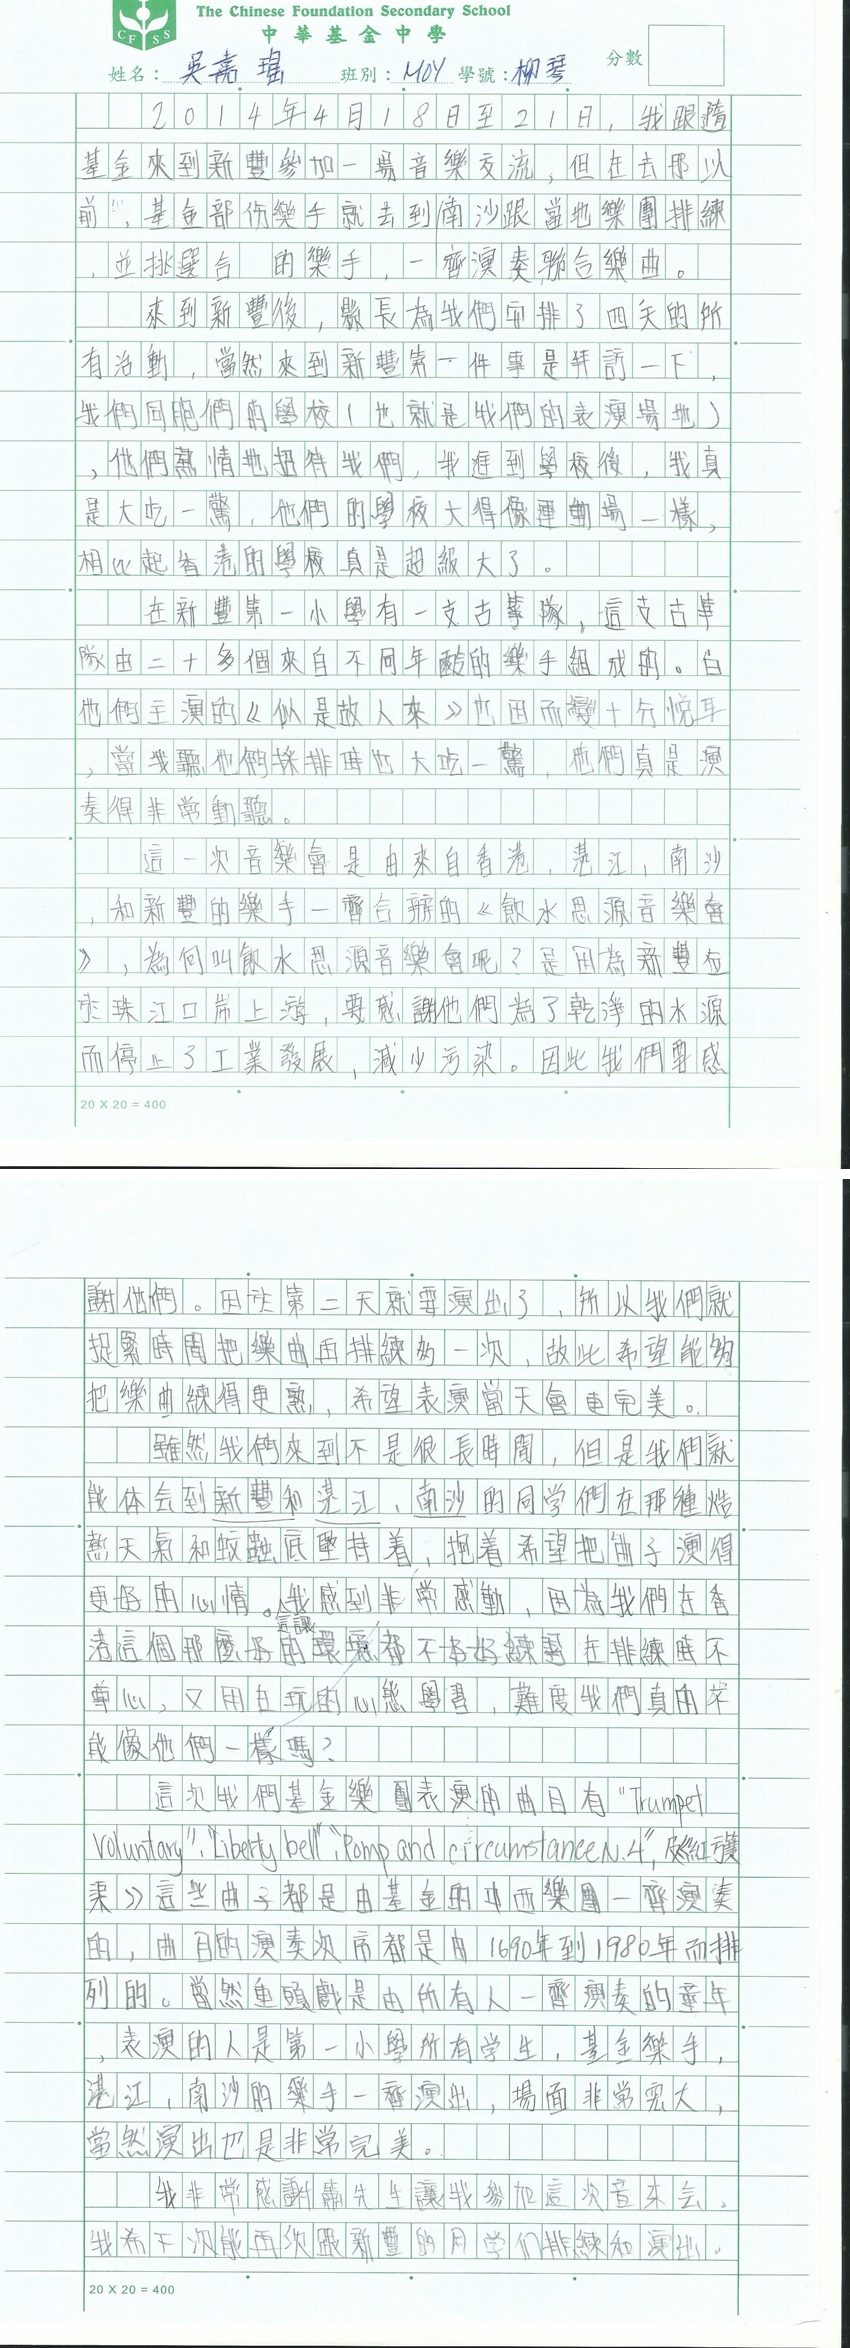 The Chinese Foundation Secondary School
中華基金中學
CFSS
姓名：吳嘉瑤 班別：M04 學號：柳琴 分數
2014年4月18日至21日，我跟隨
基金來到新豐參加一場音樂交流，但在去那以
前，基金部份樂手就去到南沙跟當地樂團排練
，並挑選合 的樂手，一齊演奏聯合樂曲。
來到新豐後，縣長為我們安排了四天的所
有活動，當然來到新豐第一件事是拜訪一下，
我們同胞們的學校(也就是我們的表演場地)
，他們熱情地招待我們，我進到學校後，我真
是大吃一驚，他們的學校大得像運動場一樣，
相比起香港的學校真是超級大了。
在新豐第一小學有一支古箏隊，這支古箏
隊由二十多個來自不同年齡的樂手組成的。由
他們主演的《似是故人來》也因而變十分悅耳
，當我聽他們採排時也大吃一驚，他們真是演
奏得非常動聽。
這一次音樂會是由來自香港，湛江，南沙
，和新豐的樂手一齊合辦的《飲水思源音樂會
》，為何叫飲水思源音樂會呢？是因為新豐位
於珠江口岸上游，要感謝他們為了乾淨的水源
而停止了工業發展，減少污染。因此我們要感
20 X 20 = 400
謝他們。因於第二天就要演出了，所以我們就
捉緊時間把樂曲再排練多一次，故此希望能夠
把樂曲練得更熟，希望表演當天會更完美。
雖然我們來到不是很長時間，但是我們就
能体会到新豐和湛江，南沙的同学們在那種焅
熱天氣和蚊蟲底堅持着，抱着希望把曲子演得
更好的心情。我感到非常感動，因為我們在香
這讓
港這個那麼好的環境都不好好練習在排練時不
專心，又用在玩的心態學習，難度我們真的不
能像他們一樣嗎？
這次我們基金樂團表演的曲目有"Trumpet
Voluntary"，"Liberty bell"，"Pomp and circumstance N.4"，
渠》這些曲子都是由基金的中西樂團一齊演奏
的，曲目的演奏次序都是由1690年到1980年而排
列的。當然重頭戲是由所有人一齊演奏的童年
，表演的人是第一小學所有学生，基金樂手，
湛江，南沙的樂手一齊演出，場面非常宏大，
當然演出也是非常完美。
我非常感謝 先生讓我參加這次音樂会。
我希下次能再次跟新豐的同学们排練和演出。
20 X 20 = 400